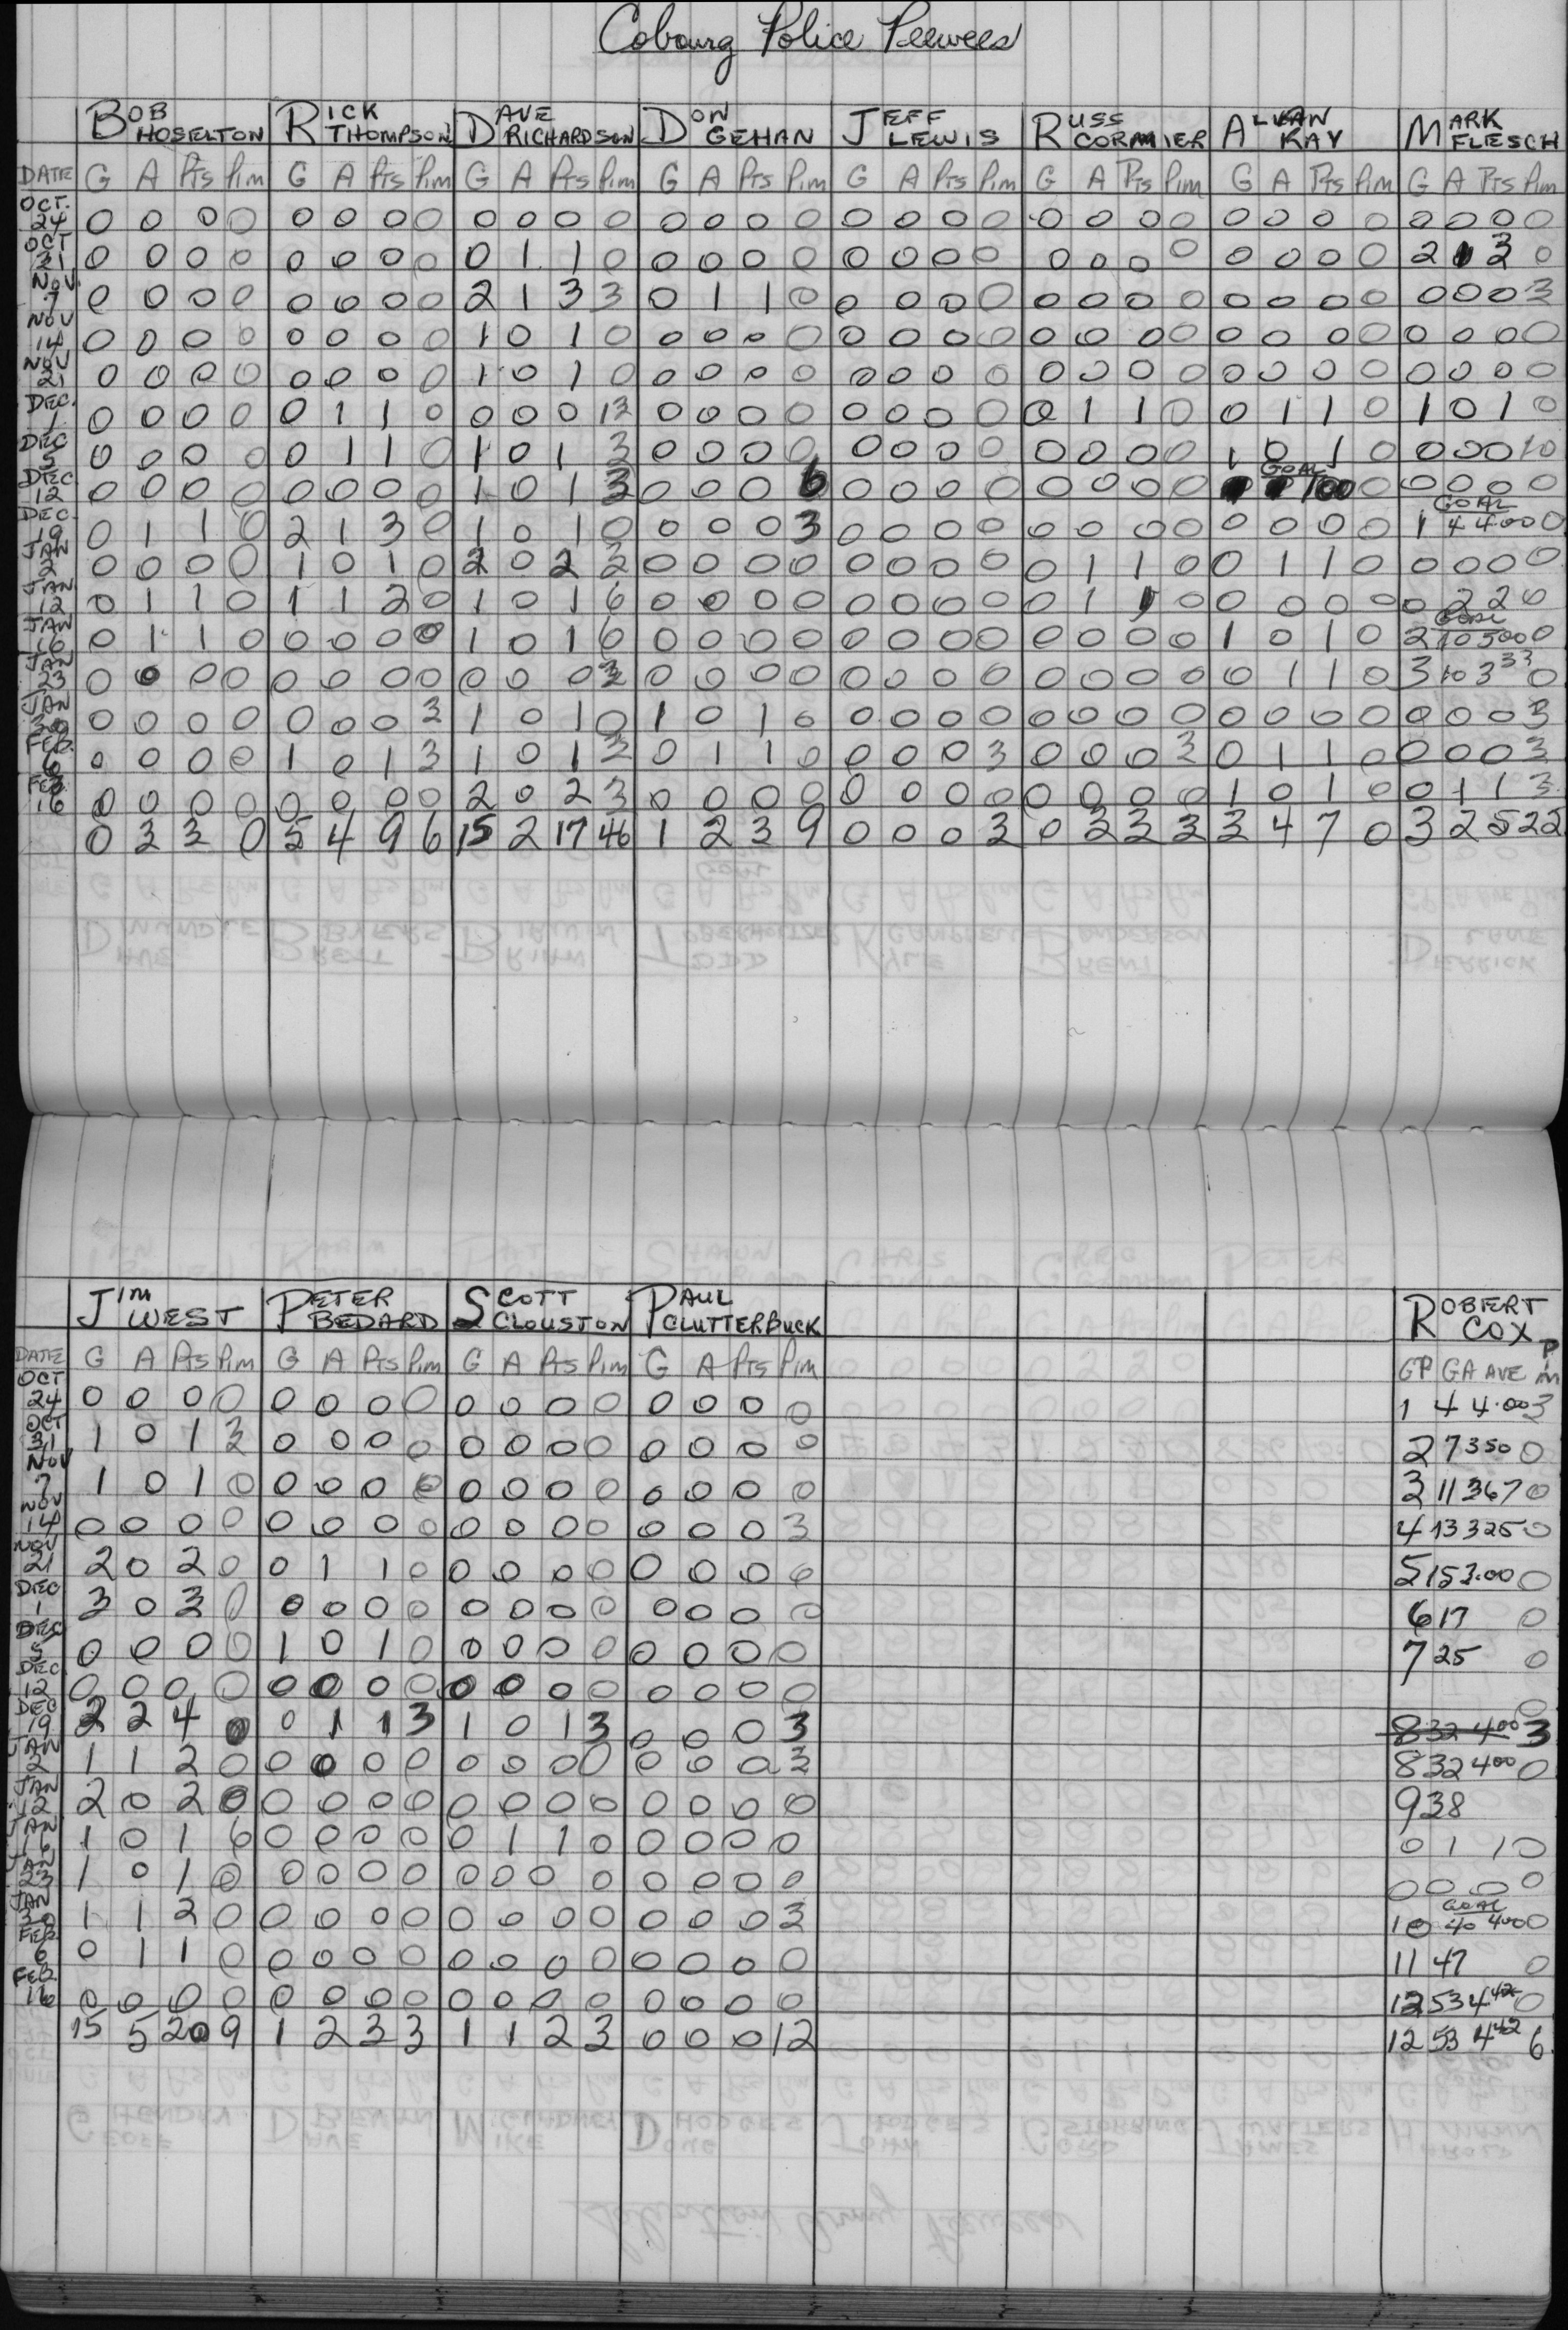 Cobourg Police Peewees
BOB HOSELTON RICK THOMPSON DAVE RICHARDSON DON GEHAN JEFF LEWIS RUSS CORMIER ALVAN RAY MARK FLESCH
DATE G A Pts Pim G A Pts Pim G A Pts Pim G A Pts Pim G A Pts Pim G A Pts Pim G A Pts Pim G A Pts Pim
OCT. 24 0 0 0 0 0 0 0 0 0 0 0 0 0 0 0 0 0 0 0 0 0 0 0 0 0 0 0 0 0 0 0 0
OCT 31 0 0 0 0 0 0 0 0 0 1 1 0 0 0 0 0 0 0 0 0 0 0 0 0 0 0 0 0 2 1 3 0
NOV. 7 0 0 0 0 0 0 0 0 2 1 3 3 0 1 1 0 0 0 0 0 0 0 0 0 0 0 0 0 0 0 0 3
NOV 14 0 0 0 0 0 0 0 0 1 0 1 0 0 0 0 0 0 0 0 0 0 0 0 0 0 0 0 0 0 0 0 0
NOV 21 0 0 0 0 0 0 0 0 1 0 1 0 0 0 0 0 0 0 0 0 0 0 0 0 0 0 0 0 0 0 0 0
DEC. 1 0 0 0 0 0 1 1 0 0 0 0 13 0 0 0 0 0 0 0 0 0 1 1 0 0 1 1 0 1 0 1 0
DEC 5 0 0 0 0 0 1 1 0 1 0 1 3 0 0 0 0 0 0 0 0 0 0 0 0 1 0 1 0 0 0 0 10
DEC 12 0 0 0 0 0 0 0 0 1 0 1 3 0 0 0 6 0 0 0 0 0 0 0 0 GOAL 100 0 0 0 0 0
DEC. 19 0 1 1 0 2 1 3 0 1 0 1 0 0 0 0 3 0 0 0 0 0 0 0 0 0 0 0 0 GOAL 1 4 4.00 0
JAN 2 0 0 0 0 1 0 1 0 2 0 2 3 0 0 0 0 0 0 0 0 0 1 1 0 0 1 1 0 0 0 0 0
JAN 12 0 1 1 0 1 1 2 0 1 0 1 6 0 0 0 0 0 0 0 0 0 1 1 0 0 0 0 0 0 2 2 0
JAN 16 0 1 1 0 0 0 0 0 1 0 1 6 0 0 0 0 0 0 0 0 0 0 0 0 1 0 1 0 GOAL 2 10 500 0
JAN 23 0 0 0 0 0 0 0 0 0 0 0 3 0 0 0 0 0 0 0 0 0 0 0 0 0 1 1 0 3 10 3 33 0
JAN 30 0 0 0 0 0 0 0 3 1 0 1 0 1 0 1 0 0 0 0 0 0 0 0 0 0 0 0 0 0 0 0 3
FEB. 6 0 0 0 0 1 0 1 3 1 0 1 3 0 1 1 0 0 0 0 3 0 0 0 3 0 1 1 0 0 0 0 3
FEB 16 0 0 0 0 0 0 0 0 2 0 2 3 0 0 0 0 0 0 0 0 0 0 0 0 1 0 1 0 0 1 1 3
0 3 3 0 5 4 9 6 15 2 17 46 1 2 3 9 0 0 0 3 0 3 3 3 3 4 7 0 3 2 5 22
JIM WEST PETER BEDARD SCOTT CLOUSTON PAUL CLUTTERBUCK ROBERT COX
DATE G A Pts Pim G A Pts Pim G A Pts Pim G A Pts Pim GP GA AVE Pim
OCT 24 0 0 0 0 0 0 0 0 0 0 0 0 0 0 0 0 1 4 4.00 3
OCT 31 1 0 1 3 0 0 0 0 0 0 0 0 0 0 0 0 2 7 350 0
NOV 7 1 0 1 0 0 0 0 0 0 0 0 0 0 0 0 0 3 11 367 0
NOV 14 0 0 0 0 0 0 0 0 0 0 0 0 0 0 0 3 4 13 325 0
NOV 21 2 0 2 0 0 1 1 0 0 0 0 0 0 0 0 0 5 15 3.00 0
DEC 1 3 0 3 0 0 0 0 0 0 0 0 0 0 0 0 0 6 17 0
DEC 5 0 0 0 0 1 0 1 0 0 0 0 0 0 0 0 0 7 25 0
DEC 12 0 0 0 0 0 0 0 0 0 0 0 0 0 0 0 0 0
DEC 19 2 2 4 0 0 1 1 3 1 0 1 3 0 0 0 3 8 32 400 3
JAN 2 1 1 2 0 0 0 0 0 0 0 0 0 0 0 0 3 8 32 400 0
JAN 12 2 0 2 0 0 0 0 0 0 0 0 0 0 0 0 0 9 38
JAN 16 1 0 1 6 0 0 0 0 0 1 1 0 0 0 0 0 0 1 1 0
JAN 23 1 0 1 0 0 0 0 0 0 0 0 0 0 0 0 0 0 0 0 0
JAN 30 1 1 2 0 0 0 0 0 0 0 0 0 0 0 0 3 GOAL 10 40 400 0
FEB 6 0 1 1 0 0 0 0 0 0 0 0 0 0 0 0 0 11 47 0
FEB. 16 0 0 0 0 0 0 0 0 0 0 0 0 0 0 0 0 12 53 4 42 0
15 5 20 9 1 2 3 3 1 1 2 3 0 0 0 12 12 53 4 42 6